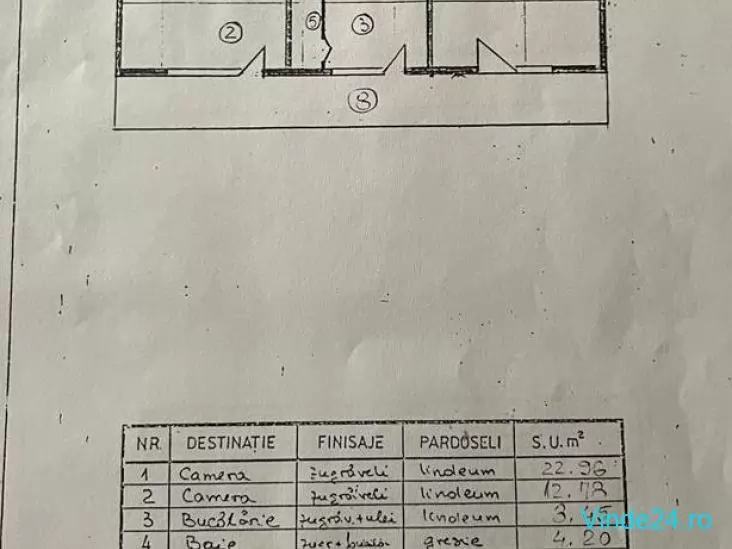 2 5 3
8
NR. DESTINAȚIE FINISAJE PARDOSELI S.U. m²
1 Camera zugrăveli linoleum 22.96
2 Camera zugrăveli linoleum 12.78
3 Bucătărie zugrăv.+ulei linoleum
4 Baie gresie 4.20
Vinde24.ro